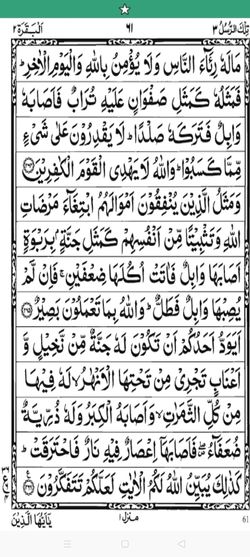 تِلْكَ الرُّسُلُ ٣ ٦١ اَلْبَقَرَة ٢
مَالَهٗ رِئَآءَ النَّاسِ وَلَا يُؤْمِنُ بِاللّٰهِ وَالْيَوْمِ الْاٰخِرِ ؕ
فَمَثَلُهٗ كَمَثَلِ صَفْوَانٍ عَلَيْهِ تُرَابٌ فَاَصَابَهٗ
وَابِلٌ فَتَرَكَهٗ صَلْدًا ؕ لَا يَقْدِرُوْنَ عَلٰى شَىْءٍ
مِّمَّا كَسَبُوْا ؕ وَاللّٰهُ لَا يَهْدِى الْقَوْمَ الْكٰفِرِيْنَ ﴿۲۶۴﴾
وَمَثَلُ الَّذِيْنَ يُنْفِقُوْنَ اَمْوَالَهُمُ ابْتِغَآءَ مَرْضَاتِ
اللّٰهِ وَتَثْبِيْتًا مِّنْ اَنْفُسِهِمْ كَمَثَلِ جَنَّةٍۭ بِرَبْوَةٍ
اَصَابَهَا وَابِلٌ فَاٰتَتْ اُكُلَهَا ضِعْفَيْنِ ۚ فَاِنْ لَّمْ
يُصِبْهَا وَابِلٌ فَطَلٌّ ؕ وَاللّٰهُ بِمَا تَعْمَلُوْنَ بَصِيْرٌ ﴿۲۶۵﴾
اَيَوَدُّ اَحَدُكُمْ اَنْ تَكُوْنَ لَهٗ جَنَّةٌ مِّنْ نَّخِيْلٍ وَّ
اَعْنَابٍ تَجْرِىْ مِنْ تَحْتِهَا الْاَنْهٰرُ ۙ لَهٗ فِيْهَا
مِنْ كُلِّ الثَّمَرٰتِ ۙ وَاَصَابَهُ الْكِبَرُ وَلَهٗ ذُرِّيَّةٌ
ضُعَفَآءُ ۖ فَاَصَابَهَاۤ اِعْصَارٌ فِيْهِ نَارٌ فَاحْتَرَقَتْ ؕ
كَذٰلِكَ يُبَيِّنُ اللّٰهُ لَكُمُ الْاٰيٰتِ لَعَلَّكُمْ تَتَفَكَّرُوْنَ ﴿۲۶۶﴾
منزل ١ يٰۤاَيُّهَا الَّذِيْنَ
61